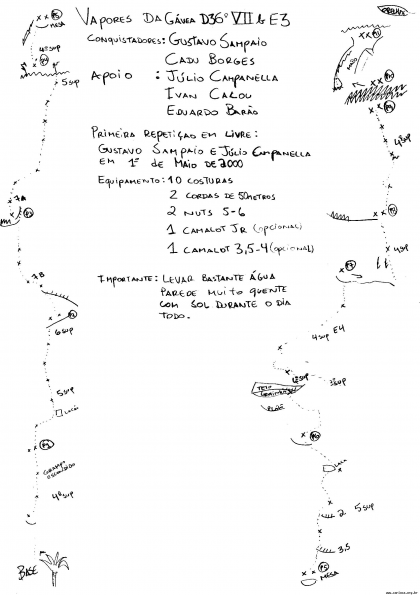 VAPORES DA GÁVEA D3 6º VII b E3
CONQUISTADORES: GUSTAVO SAMPAIO
CADU BORGES
APOIO : JÚLIO CAMPANELLA
IVAN CALOU
EDUARDO BARÃO
PRIMEIRA REPETIÇÃO EM LIVRE:
GUSTAVO SAMPAIO E JÚLIO CAMPANELLA
EM 1º DE MAIO DE 2000
EQUIPAMENTO: 10 COSTURAS
2 CORDAS DE 50METROS
2 NUTS 5-6
1 CAMALOT JR (OPCIONAL)
1 CAMALOT 3,5-4 (OPCIONAL)
IMPORTANTE: LEVAR BASTANTE ÁGUA
PAREDE MUITO QUENTE
COM SOL DURANTE O DIA
TODO.
P5
MESA
4º SUP
5 SUP
7A
P3
7B
P2
6 SUP
5 SUP
LACA
P1
GRAMPO
ESCONDIDO
4º SUP
BASE
4º SUP
4 SUP
P7
4 SUP E4
TETO
P6
LACA
2
5 SUP
3,5
P5
MESA